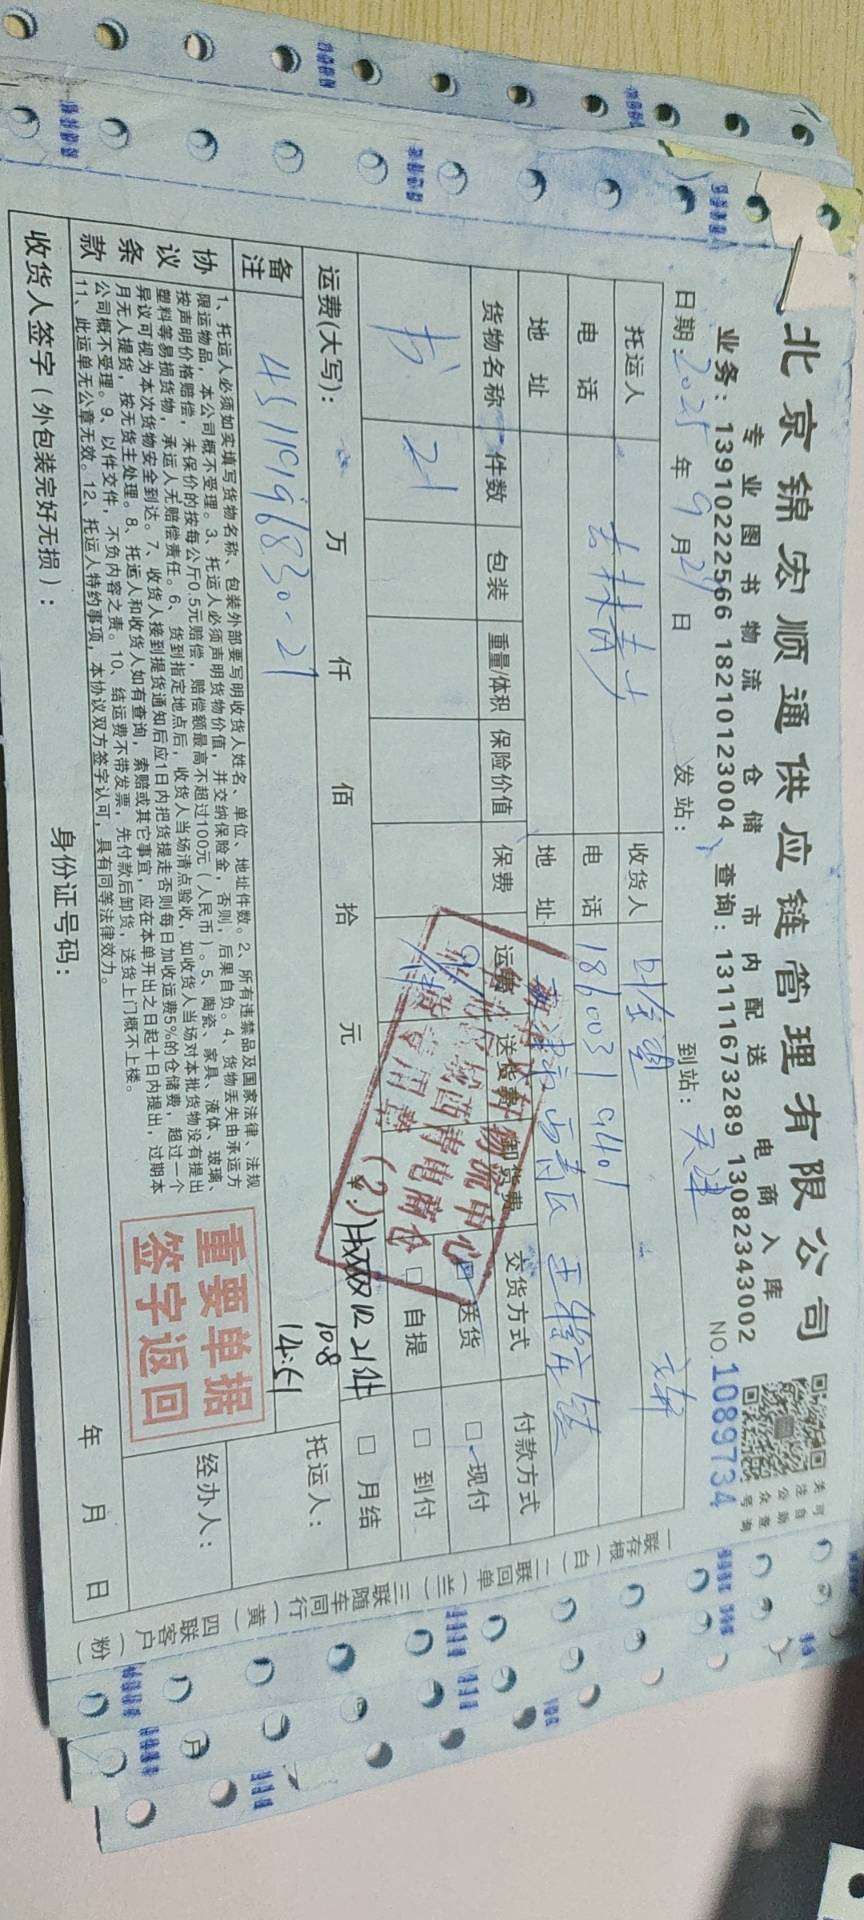 北京锦宏顺通供应链管理有限公司
专业图书物流 仓储 市内配送 电商入库
业务：13910222566 18210123004 查询：13111673289 13082343002
关注公众号
可自助查询
NO.1089734
日期：2025年9月29日 发站： 到站：天津
托运人 收货人
电话 电话 18600319401
地址 地址
货物名称 件数 包装 重量/体积 保险价值 保费 运费 送货费 卸货费 交货方式 付款方式
书 21
□送货 □现付
□自提 □到付
□月结
运费(大写)： 万 仟 佰 拾 元 ¥：
21件
10.8
14:51
备注 45119196830-21
托运人：
协议条款
1、托运人必须如实填写货物名称、包装外部要写明收货人姓名、单位、地址件数。2、所有违禁品及国家法律、法规
限运物品，本公司概不受理。3、托运人必须声明货物价值，并交纳保险金，否则，后果自负。4、货物丢失由承运方
按声明价格赔偿，未保价的按每公斤0.5元赔偿，赔偿额最高不超过100元（人民币）。5、陶瓷、家具、液体、玻璃、
塑料等易损货物，承运人无赔偿责任。6、货到指定地点后，收货人当场清点验收，如收货人当场对本批货物没有提出
异议可视为本次货物安全到达。7、收货人接到提货通知后应1日内把货提走否则每日加收运费5%的仓储费，超过一个
月无人提货，按无货主处理。8、托运人和收货人如有查询，索赔或其它事宜，应在本单开出之日起十日内提出，过期本
公司概不受理。9、以件交件，不负内容之责。10、结运费不带发票，先付款后卸货，送货上门概不上楼。
11、此运单无公章无效。12、托运人特约事项，本协议双方签字认可，具有同等法律效力。
重要单据
签字返回
经办人：
收货人签字（外包装完好无损）： 身份证号码： 年 月 日
一联存根（白） 二联回单（兰） 三联随车同行（黄） 四联客户（粉）